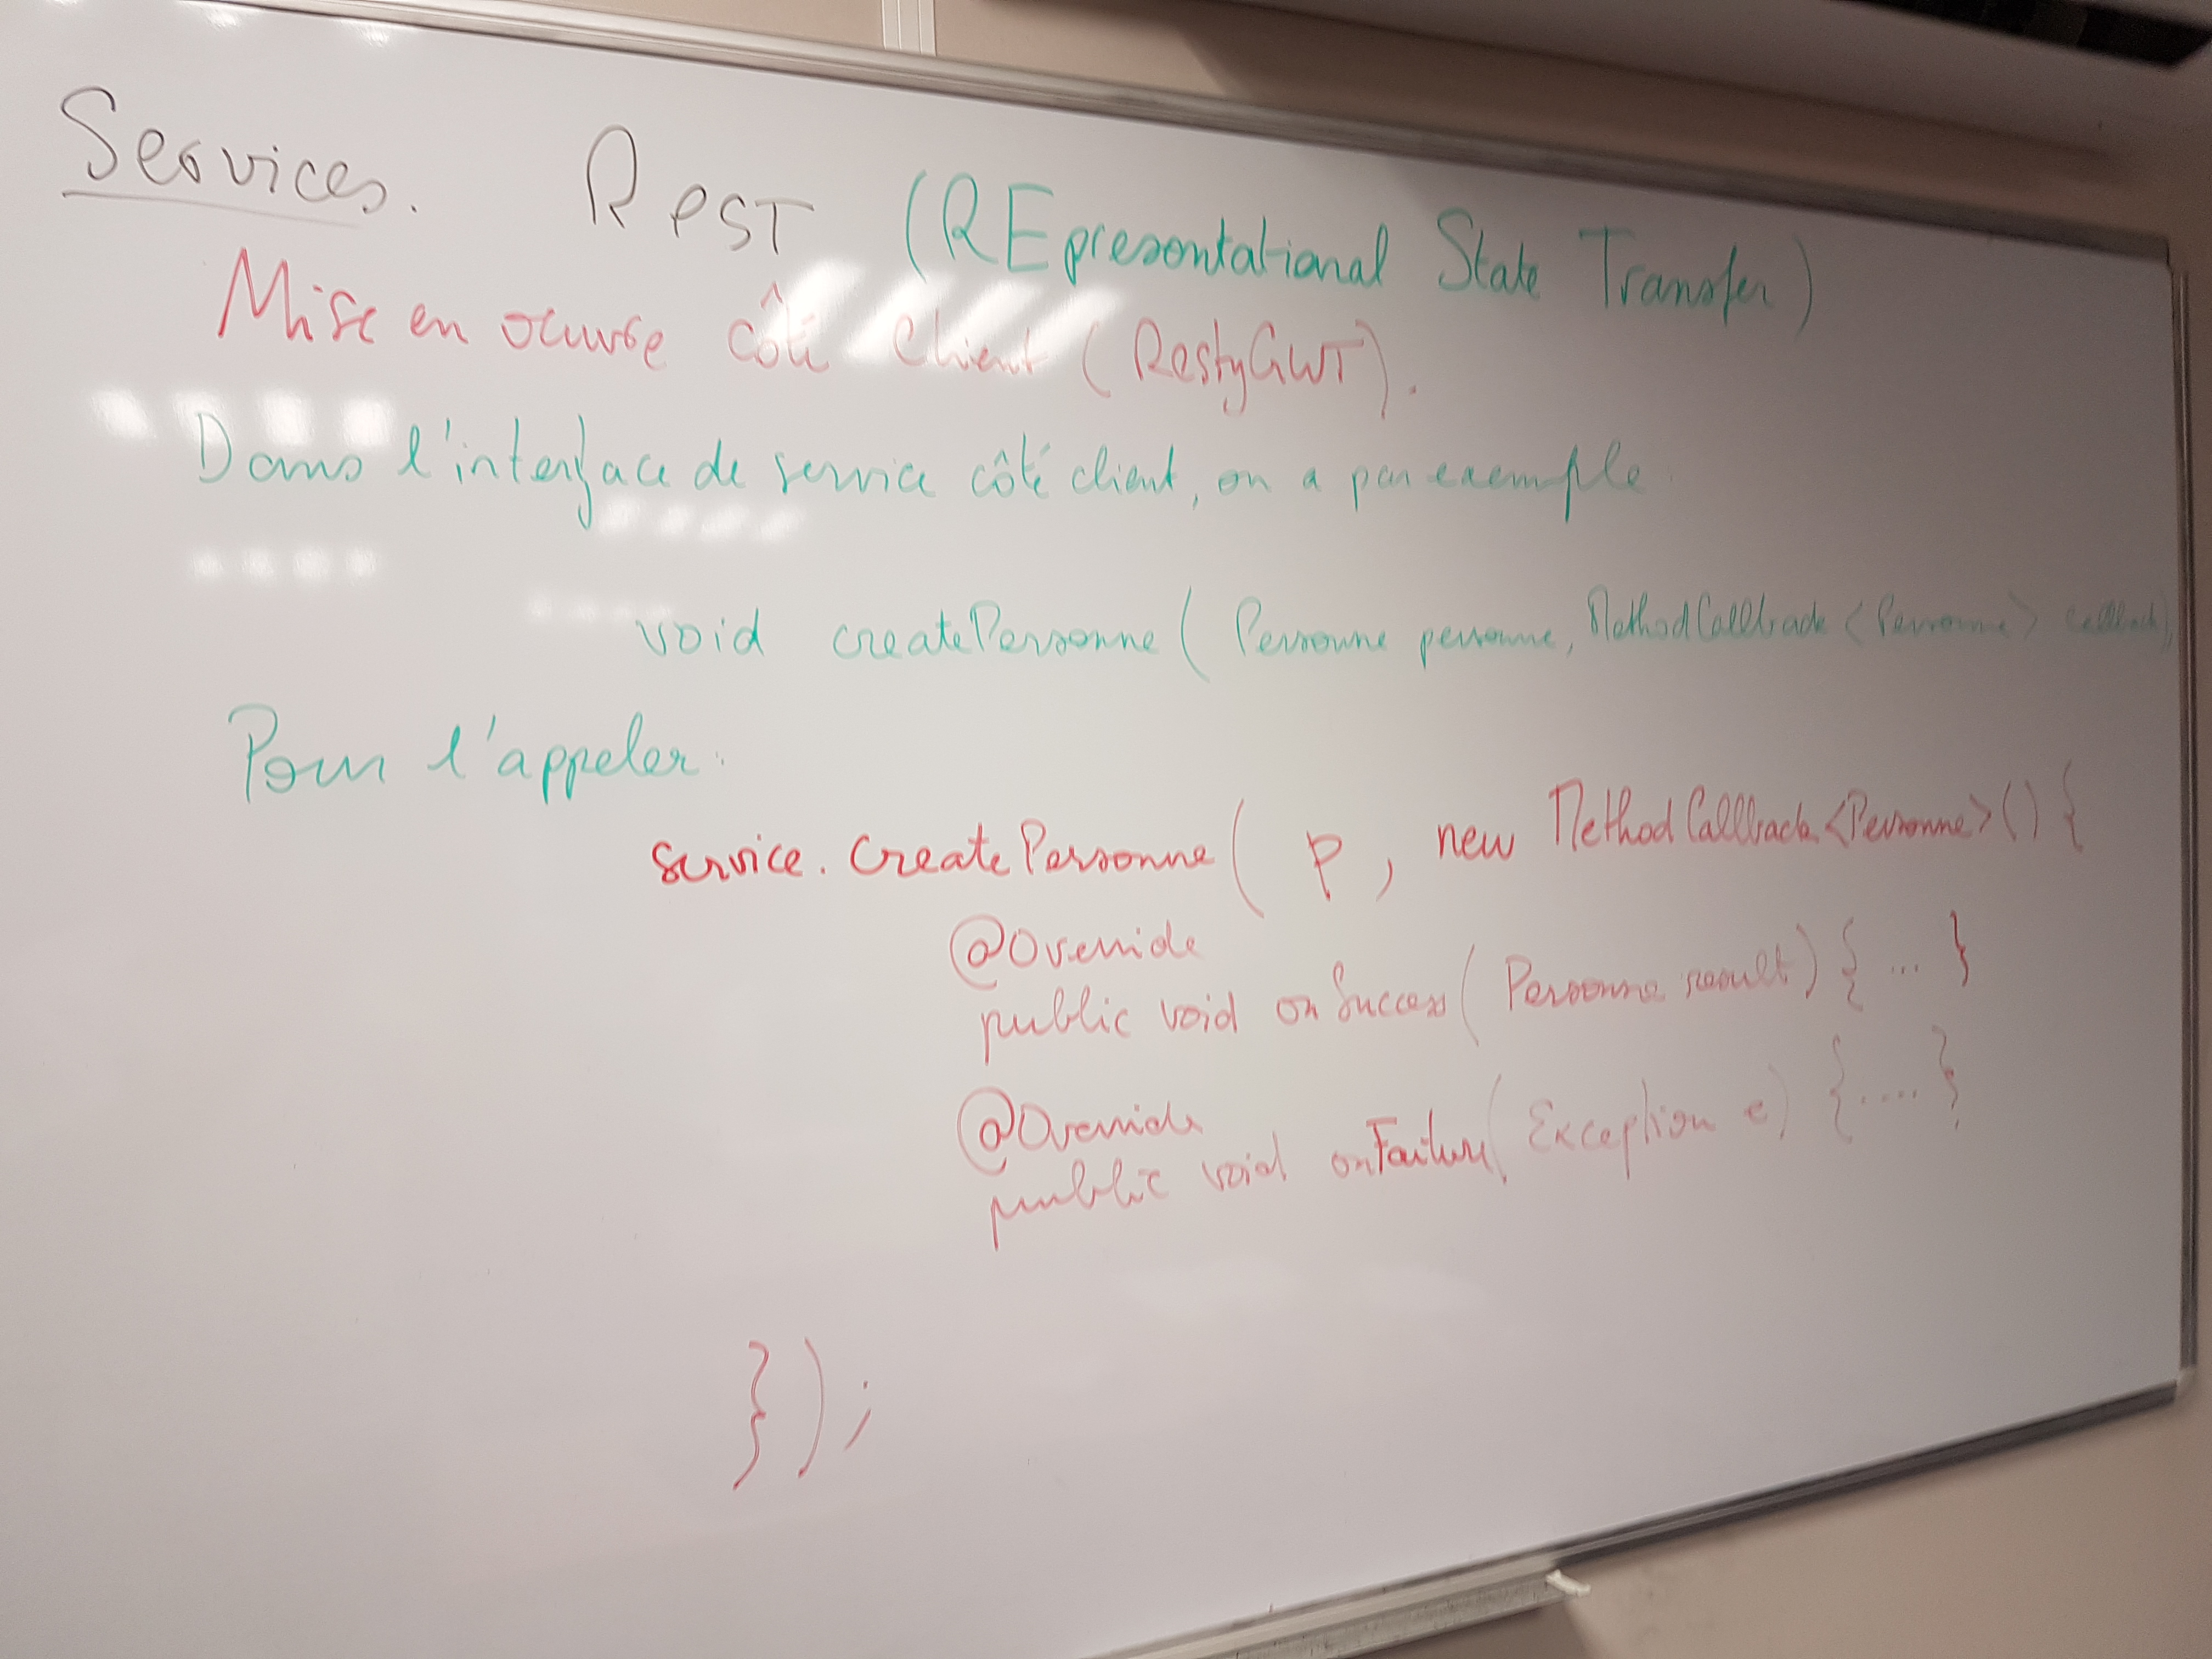 Services. REST (REpresentational State Transfer)
Mise en oeuvre côté client (RestyGWT).
Dans l'interface de service côté client, on a par exemple
void createPersonne( Personne personne, MethodCallback <Personne> callback),
Pour l'appeler:
service.createPersonne( p, new MethodCallback<Personne>() {
@Override
public void onSuccess( Personne result) { ... }
@Override
public void onFailure( Exception e) { .... }
});